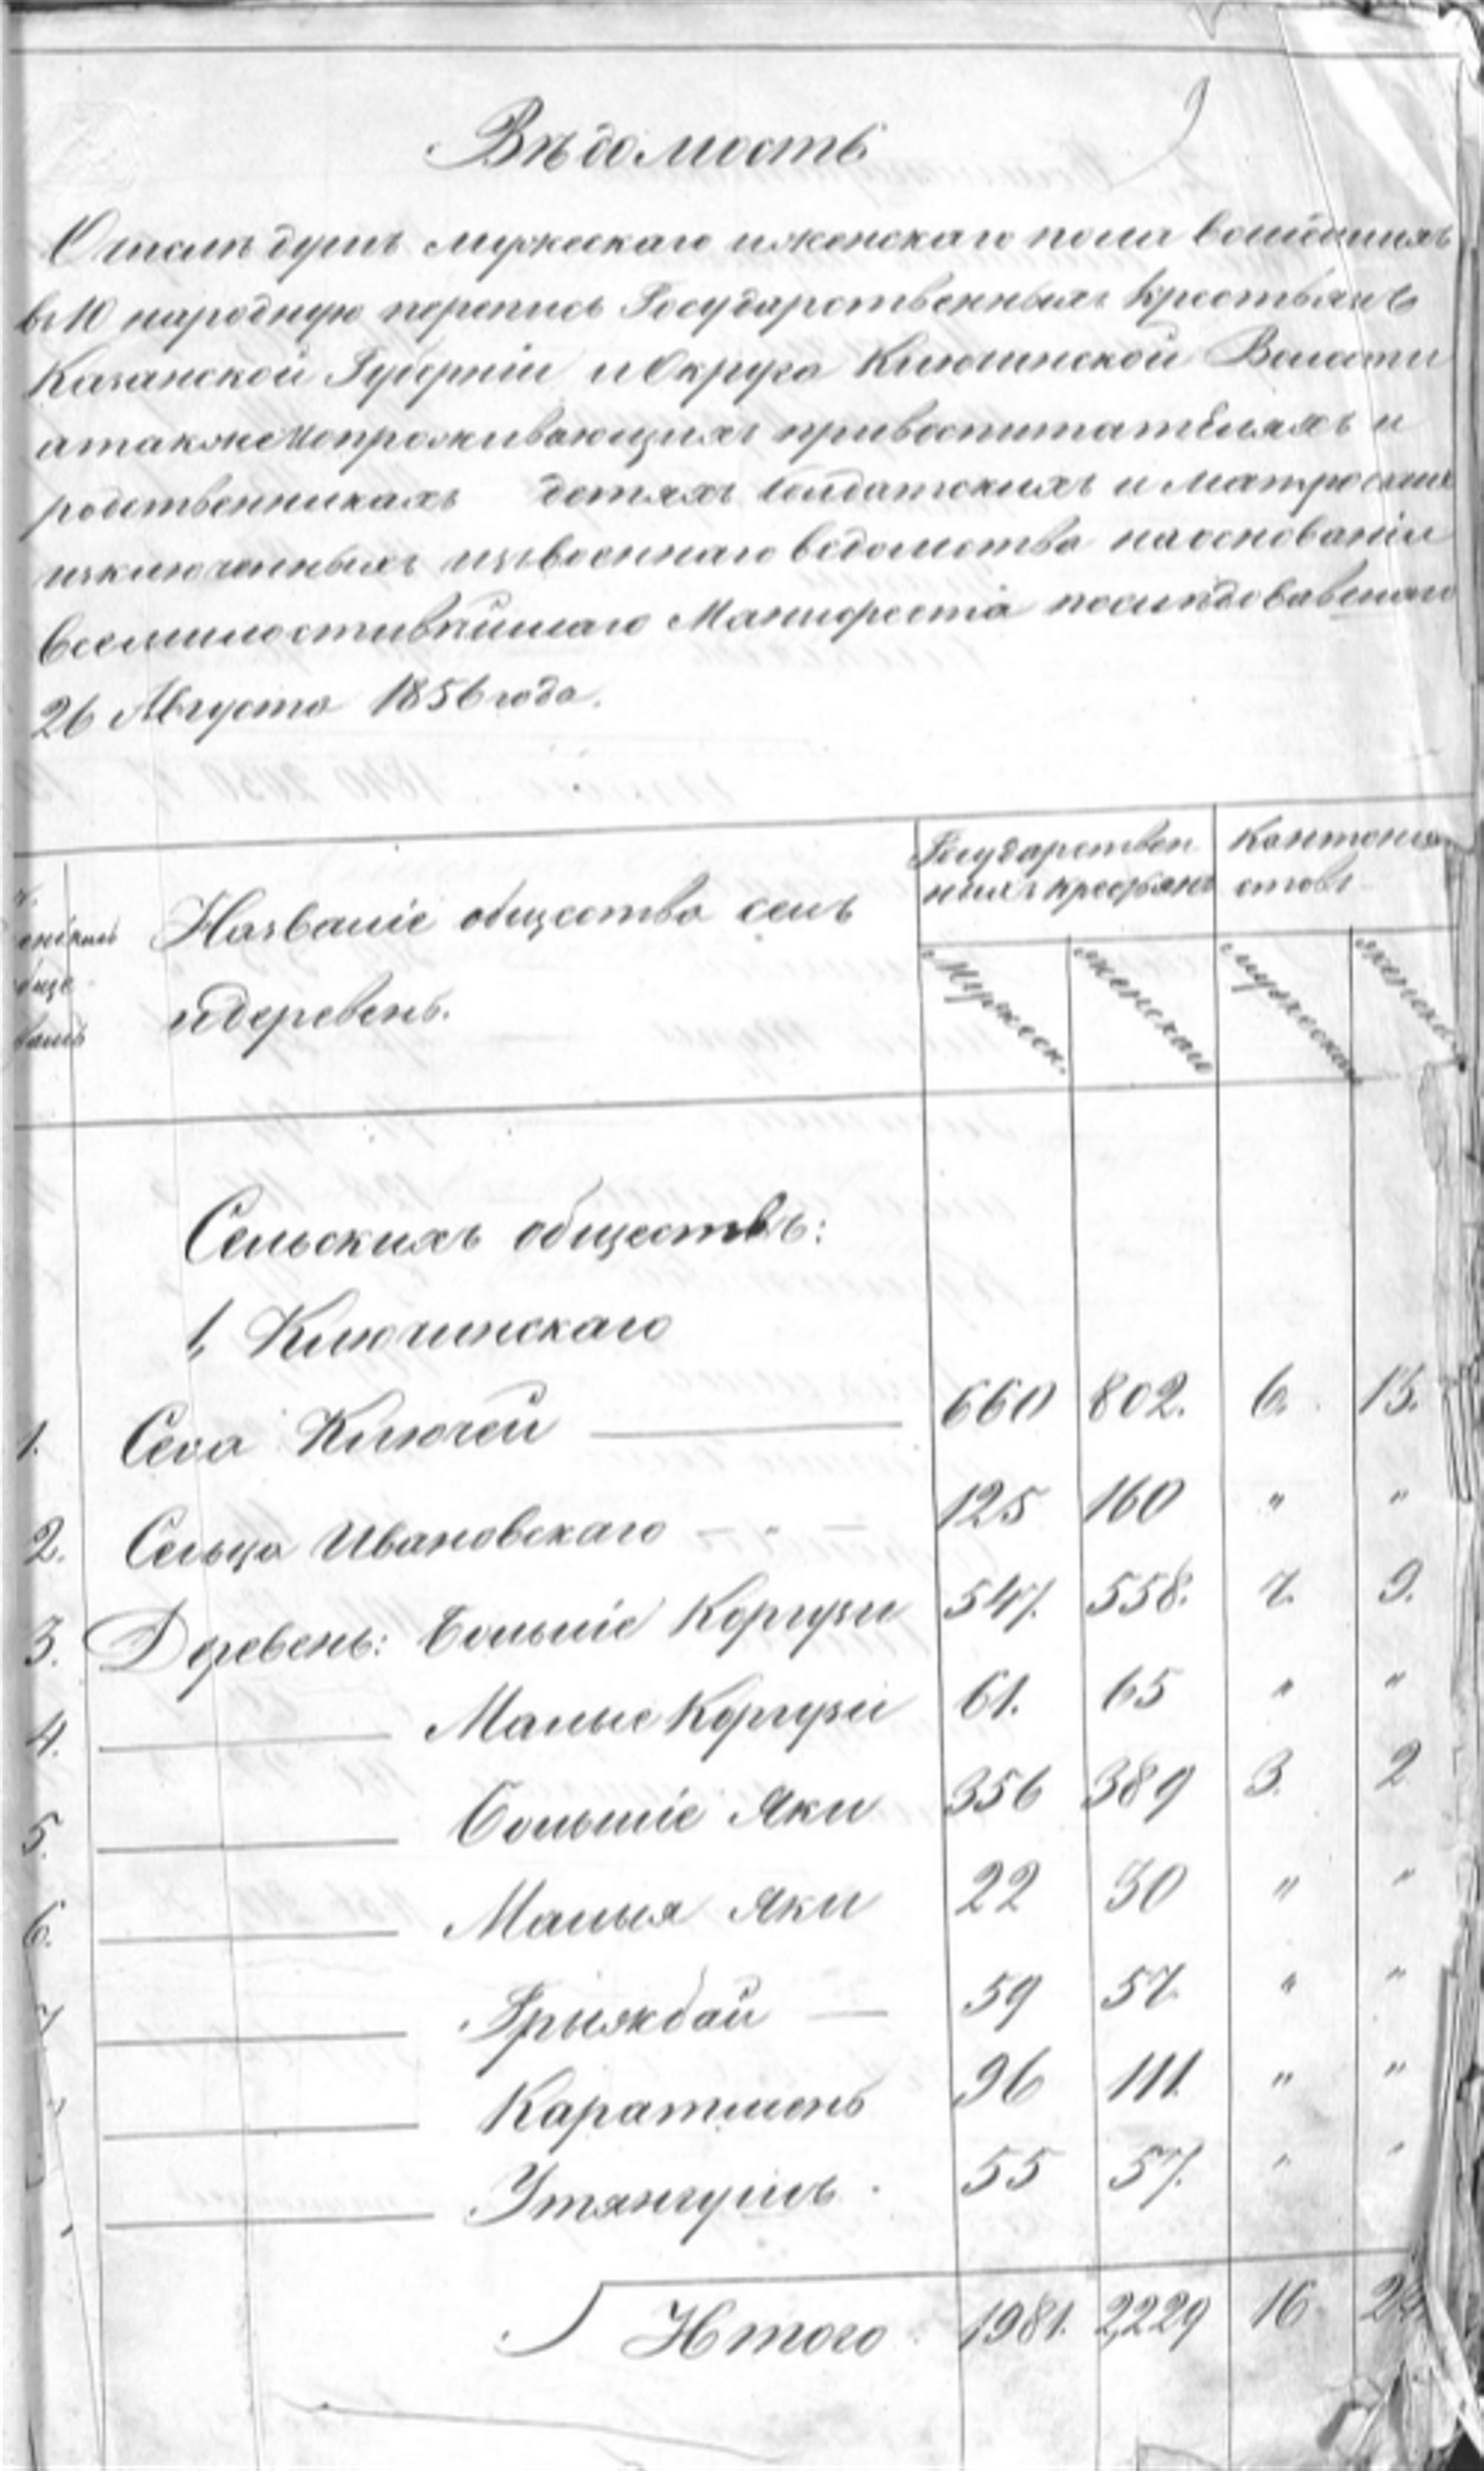 9
Вѣдомость
О числѣ душъ мужескаго и женскаго пола вошедшихъ
въ 10 народную перепись Государственныхъ Крестьянъ
Казанской Губерніи и Округа Ключинской Волости
а также и о проживающихъ при воспитателяхъ и
родственникахъ детяхъ солдатскихъ и матроскихъ
изключенныхъ изъ военнаго ведомства на основаніи
Всемилостивѣйшаго Манифеста последовавшаго
26 Августа 1856 года.
Названіе общества селъ
и деревень.
Государствен
ныхъ крестьянъ
Кантони
стовъ
Мужеск.
женскаго
мужескаго
женскаго
Сельскихъ обществъ:
1, Ключинскаго
1. Села Ключей 660 802. 6. 13.
2. Сельца Ивановскаго 125 160 " "
3. Деревень: Большіе Коргузи 547. 558. 7. 9.
4. Малые Коргузи 61. 65 " "
5. Большіе Яки 356 389 3. 2
6. Малыя Яки 22 30 " "
7 59 57. " "
Каратмень 96 111. " "
Утянгушъ 55 57. " "
Итого 1981. 2229 16 24